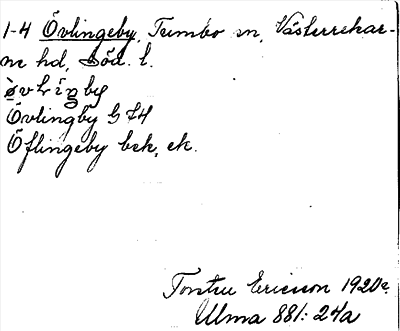 1-4 Övlingeby, Tumbo sn, Västerrekar-
ne hd, Söd. l.
Övlingby G 74
Öflingeby bek, ek.
Torsten Ericsson 1920
Ulma 881: 24a